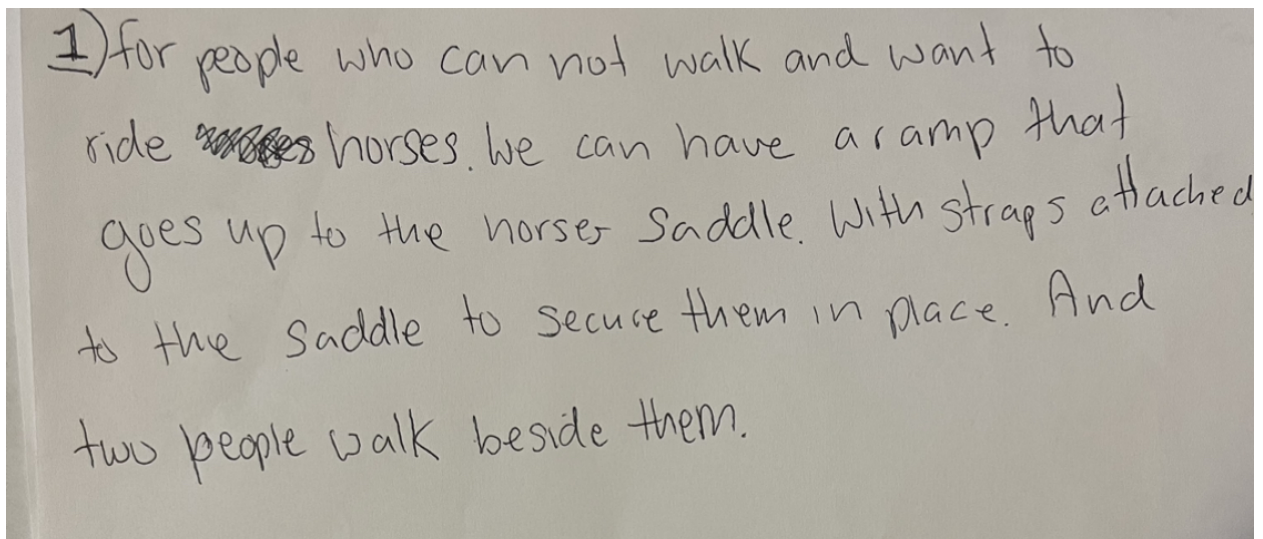 1) for people who can not walk and want to
ride horses. We can have a ramp that
goes up to the horses saddle. With straps attached
to the saddle to secure them in place. And
two people walk beside them.